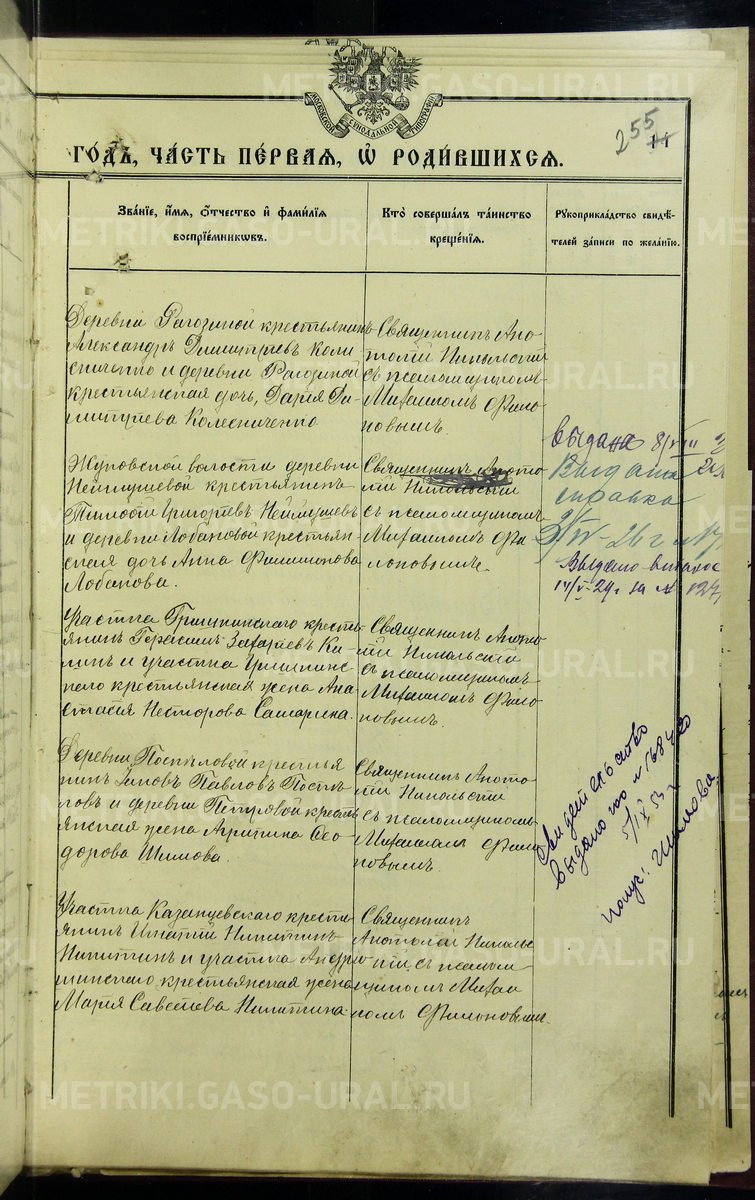 МОСКОВСКОЙ СѴНОДАЛЬНОЙ ТИПОГРАФІИ
255
11
ГО́ДЪ, ЧА́СТЬ ПЕ́РВАЯ, Ѿ РОДИ́ВШИХСЯ.
Зва́нїе, и́мя, ѻ҆́тчество и҆ фами́лїя
воспрїе́мникѡвъ.
Кто̀ соверша́лъ та́инство
креще́нїя.
Рукоприкла́дство свидѣ́-
телей за́писи по жела́нїю.
Деревни Рагозиной крестьянинъ
Александръ Димитріевъ Коле
сниченко и деревни Рагозиной
крестьянская дочь, Дарія Ди-
митріева Колесниченко
Священникъ Ана-
толій Никольскій
съ псаломщикомъ
Михаиломъ Фило-
новымъ
Жуковской волости деревни
Неймушевой крестьянинъ
Тимофей Григорьевъ Неймушевъ
и деревни Лобановой крестьян-
ская дочь Анна Филимонова
Лобанова.
Священникъ Анато-
лій Никольскій
съ псаломщикомъ
Михаиломъ Фи-
лоновымъ.
выдана
Выдана
справка
Выдано
Участка Гришкинскаго кресть-
янинъ Герасимъ Захаріевъ Ка-
линъ и участка Гришкинс-
каго крестьянская жена Ана
стасія Несторова Самарина.
Священникъ Анато-
лій Никольскій
съ псаломщикомъ
Михаиломъ Фило-
новымъ.
Деревни Поспѣловой крестья
нинъ Іаковъ Павловъ Поспѣ-
ловъ и деревни Петровой кресть
янская жена Агрипина Ѳео-
дорова Шилова.
Священникъ Анато-
лій Никольскій
съ псаломщикомъ
Михаиломъ Фило
новымъ.
Свидетельство
выдано
5/IX 53 г.
Участка Казанцевскаго кресть-
янинъ Игнатій Никитинъ
Никитинъ и участка Андрю-
шинскаго крестьянская жена
Марія Саветева Никитина.
Священникъ
Анатолій Никольс
кій, съ псалом-
щикомъ Михаи
ломъ Филоновымъ.
METRIKI.GASO-URAL.RU